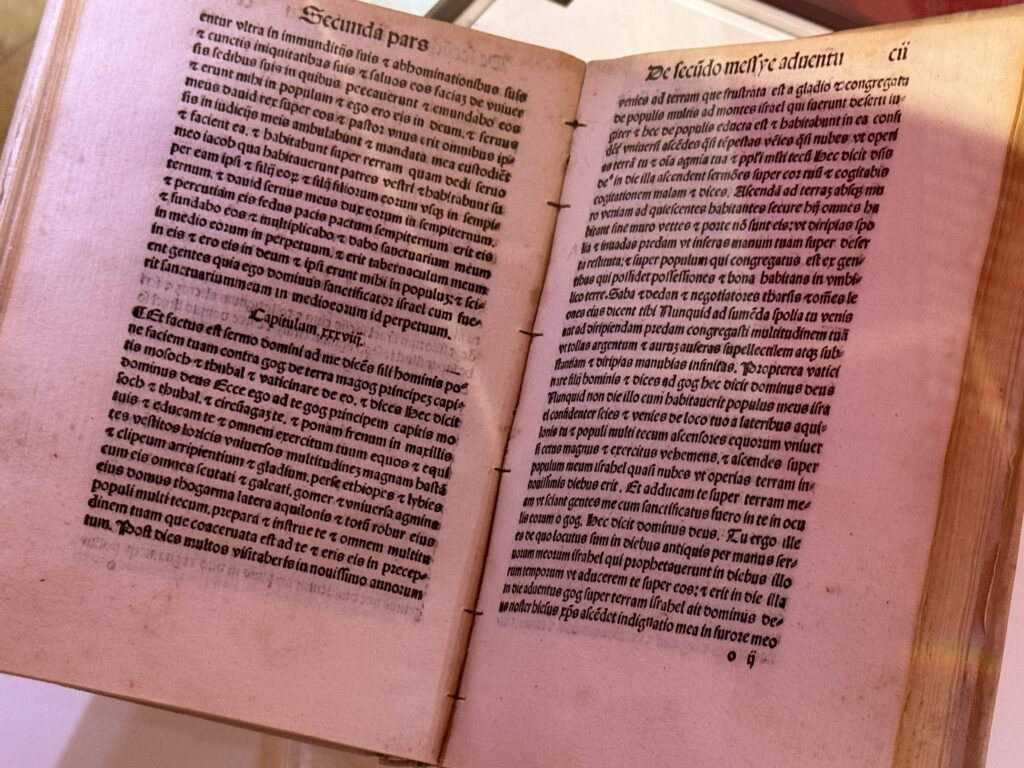 Secunda pars
entur vltra in immunditijs suis ⁊ abhominationibus suis
⁊ cunctis iniquitatibus suis ⁊ saluos eos faciaȝ de vniuer
sis sedibus suis in quibus peccauerunt ⁊ emundabo eos
⁊ erunt mihi in populum ⁊ ego ero eis in deum. ⁊ seruus
meus dauid rex super eos ⁊ pastor vnus erit omnibus ip̄
sis in iudicijs meis ambulabunt ⁊ mandata mea custodiẽt
⁊ facient ea. ⁊ habitabunt super terram quam dedi seruo
meo iacob qua habitauerunt patres vestri ⁊ habitabunt su
per eam ipsi ⁊ filij eoꝝ ⁊ filij filiorum eorum vsqȝ in sempi
ternum. ⁊ dauid seruus meus dux eorum in sempiternum.
⁊ percutiam eis fedus pacis pactum sempiternum erit eis
⁊ fundabo eos ⁊ multiplicabo, ⁊ dabo sanctuarium meum
in medio eorum in perpetuum, ⁊ erit tabernaculum meum
in eis ⁊ ero eis in deum ⁊ ipsi erunt mihi in populuȝ: ⁊ sci⸗
ent gentes quia ego dominus sanctificator israel cum fue⸗
rit sanctuarium meum in medio eorum id perpetuum.
Capitulum. xxxviij.
⸿Et factus est sermo domini ad me dicẽs fili hominis po⸗
ne faciem tuam contra gog de terra magog principeȝ capi⸗
tis mosoch ⁊ thubal ⁊ vaticinare de eo, ⁊ dices Hec dicit
dominus deus Ecce ego ad te gog principem capitis mo⸗
soch ⁊ thubal, ⁊ circũagaȝ te, ⁊ ponam frenum in maxillis
tuis ⁊ educam te ⁊ omnem exercitum tuum equos ⁊ equi
tes vestitos loricis vniuersos multitudineȝ magnam hastã
⁊ clipeum arripientium ⁊ gladium, perse ethiopes ⁊ lybies
cum eis omnes scutati ⁊ galeati, gomer ⁊ vniuersa agmina
eius domus thogarma latera aquilonis ⁊ totũ robur eius
populi multi tecum, prepara ⁊ instrue te ⁊ omnem multitu
dinem tuam que coaceruata est ad te ⁊ eris eis in precep⸗
tum. Post dies multos visitaberis in nouissimo annorum
De secũdo messye aduentu cij
venies ad terram que frustrata est a gladio ⁊ congregata
de populis multis ad montes israel qui fuerunt deserti iu⸗
giter ⁊ hec de populis educta est ⁊ habitabunt in ea confi
dẽt vniuersi ascẽdes q̃si tẽpestas vẽies q̃si nubes vt operi
as terrã tu ⁊ oĩa agmina tua ⁊ ppl̃i multi tecũ Hec dicit dñs
deꝰ in die illa ascendent sermões super cor tuũ ⁊ cogitabis
cogitationem malam ⁊ dices. Ascendã ad terraȝ absqȝ mu
ro veniam ad quiescentes habitantes secure hij omnes ha
bitant sine muro vectes ⁊ porte nõ sunt eis: vt diripias spo
lia ⁊ inuadas predam vt inferas manum tuam super deser
ta restituta: ⁊ super populum qui congregatus est ex gen⸗
tibus qui possidet possessiones ⁊ bona habitans in vmbi⸗
lico terre. Saba ⁊ dedan ⁊ negotiatores tharsis ⁊ oẽs le
ones eius dicent tibi Nunquid ad sumẽda spolia tu venis
aut ad diripiendam predam congregasti multitudinem tuã
vt tollas argentum ⁊ auruȝ auferas supellectilem atqȝ sub⸗
stantiam ⁊ diripias manubias infinitas. Propterea vatici
nare fili hominis ⁊ dices ad gog hec dicit dominus deus
Nunquid non die illo cum habitauerit populus meus isra
el confidenter scies ⁊ venies de loco tuo a lateribus aqui⸗
lonis tu ⁊ populi multi tecum ascensores equorum vniuer
si cetus magnus ⁊ exercitus vehemens, ⁊ ascendes super
populum meum israhel quasi nubes vt operias terram in⸗
nouissimis diebus erit. Et adducam te super terram me⸗
am vt sciant gentes me cum sanctificatus fuero in te in ocu
lis eorum o gog. Hec dicit dominus deus. Tu ergo ille
es de quo locutus sum in diebus antiquis per manus ser⸗
uorum meorum israhel qui prophetauerunt in diebus illo
rum temporum vt adducerem te super eos: ⁊ erit in die illa
in die aduentus gog super terram israhel ait dominus de⸗
us noster hiesus xp̃s ascẽdet indignatio mea in furore meo
o ij